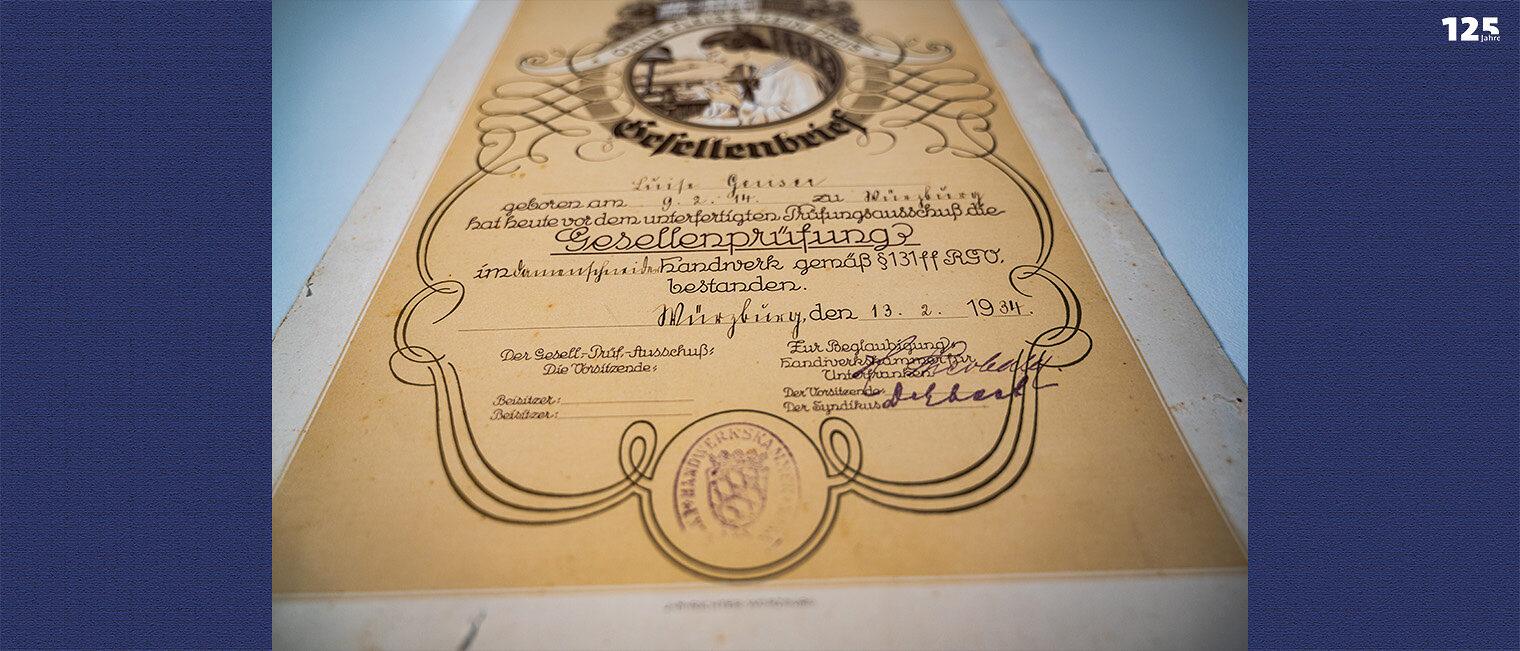 125
Jahre
Gesellenbrief
Luise Geiser
geboren am 9. 2. 14. zu Würzburg
hat heute vor dem unterfertigten Prüfungsausschuß die
Gesellenprüfung
im Damenschneider Handwerk gemäß § 131 ff RGO.
bestanden.
Würzburg, den 13. 2. 1934.
Der Gesell-Prüf-Ausschuß:
Die Vorsitzende:
Beisitzer:
Beisitzer:
Zur Beglaubigung
Handwerkskammer für
Unterfranken
Der Vorsitzende:
Der Syndikus
HANDWERKSKAMMER